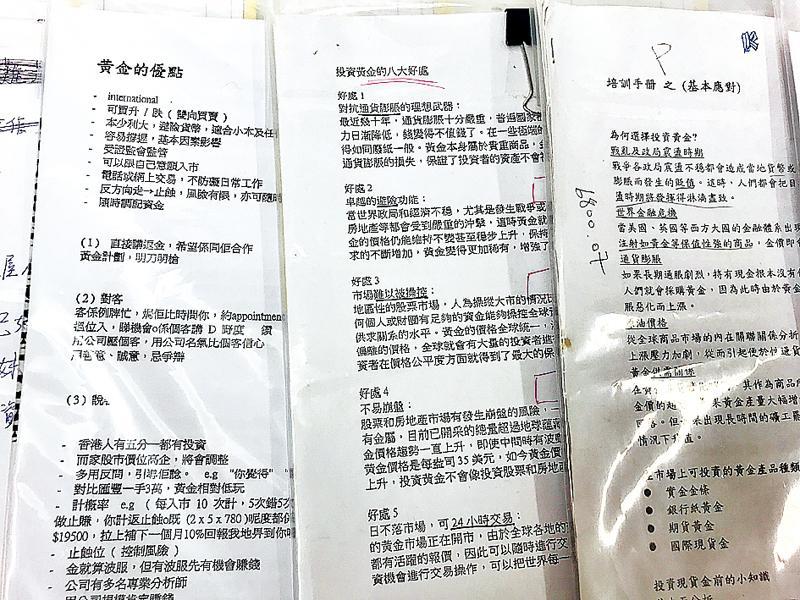 黃金的優點
- international
- 可買升 / 跌 ( 雙向買賣 )
- 本少利大，避險貨幣，適合小本及任
- 容易掌握，基本因素影響
- 受證監會監管
- 可以跟自己意願入市
- 電話或網上交易，不防礙日常工作
- 反方向走→止蝕，風險有限，亦可隨時
- 隨時調配資金
(1) 直接講返金，希望係同佢合作
黃金計劃，明刀明槍
(2) 對客
客係例牌忙，妮佢比時間你，約appointment
搵位入，睇機會o係個客講 D
用公司壓個客，用公司名氣比個客信心
誠意，忌爭辯
(3)
- 香港人有五分一都有投資
- 而家股市價位高企，將會調整
- 多用反問，引導佢諗。 e.g "你覺得"
- 對比匯豐一手3萬，黃金相對低玩
- 計概率 e.g ( 每入市 10 次計，5次錯5次
做止賺，你計返止蝕o既 (2 x 5 x 780)呢度都係
$19500，拉上補下一個月10%回報我地界到你
- 止蝕位 ( 控制風險 )
- 金就算波服，但有波服先有機會賺錢
- 公司有多名專業分析師
投資黃金的八大好處
好處 1
對抗通貨膨脹的理想武器：
最近幾十年，通貨膨脹十分嚴重，普遍國家
力日漸降低，錢變得不值錢了。在一些極端的
得如同廢紙一般。黃金本身屬於貴重商品，
通貨膨脹的損失，保證了投資者的資產不會被
好處 2
卓越的避險功能：
當世界政局和經濟不穩，尤其是發生戰爭或
房地產等都會受到嚴重的沖擊，這時黃金就
金的價格仍能維持不變甚至穩步上升，保持
求的不斷增加，黃金變得更加稀有，增強了
好處 3
市場難以被操控：
地區性的股票市場，人為操縱大市的情況比
何個人或財團有足夠的資金能夠操控全球
供求關係的水平。黃金的價格全球統一，
偏離的價格，全球就會有大量的投資者進
資者在價格公平度方面就得到了最大的保
好處 4
不易崩盤：
股票和房地產市場有發生崩盤的風險，一
有金屬，目前已開采的總量超過地球蘊藏
金價格趨勢一直上升，即使中間時有波動
黃金價格是每盎司 35 美元，如今黃金價
上升，投資黃金不會像投資股票和房地產
好處 5
日不落市場，可 24 小時交易：
的黃金市場正在開市，由於全球各地的
都有活躍的報價，因此可以隨時進行交
資機會進行交易操作，可以把世界每一
P
培訓手冊 之 (基本應對)
為何選擇投資黃金?
戰亂及政局震盪時期
戰爭各政局震盪不穩都會造成當地貨幣或
膨脹而發生的貶值。這時，人們都會把目
亂時期將發揮得淋漓盡致。
世界金融危機
當美國、英國等西方大國的金融體系出現
注射如黃金等保值性強的商品，金價即會
通貨膨脹
如果長期通脹劇烈，持有現金根本沒有
人們就會採購黃金，因此時由於黃金
脹惡化而上漲。
油價格
從全球商品市場的內在關聯關係分析
上漲壓力加劇，從而引起使於但通貨
黃金供需關係
其作為商品
果黃金產量大幅增
出現長時間的礦工罷
情況下升值。
在市場上可投資的黃金產品種類
● 實金金條
● 銀行紙黃金
● 期貨黃金
● 國際現貨金
投資現貨金前的小知識